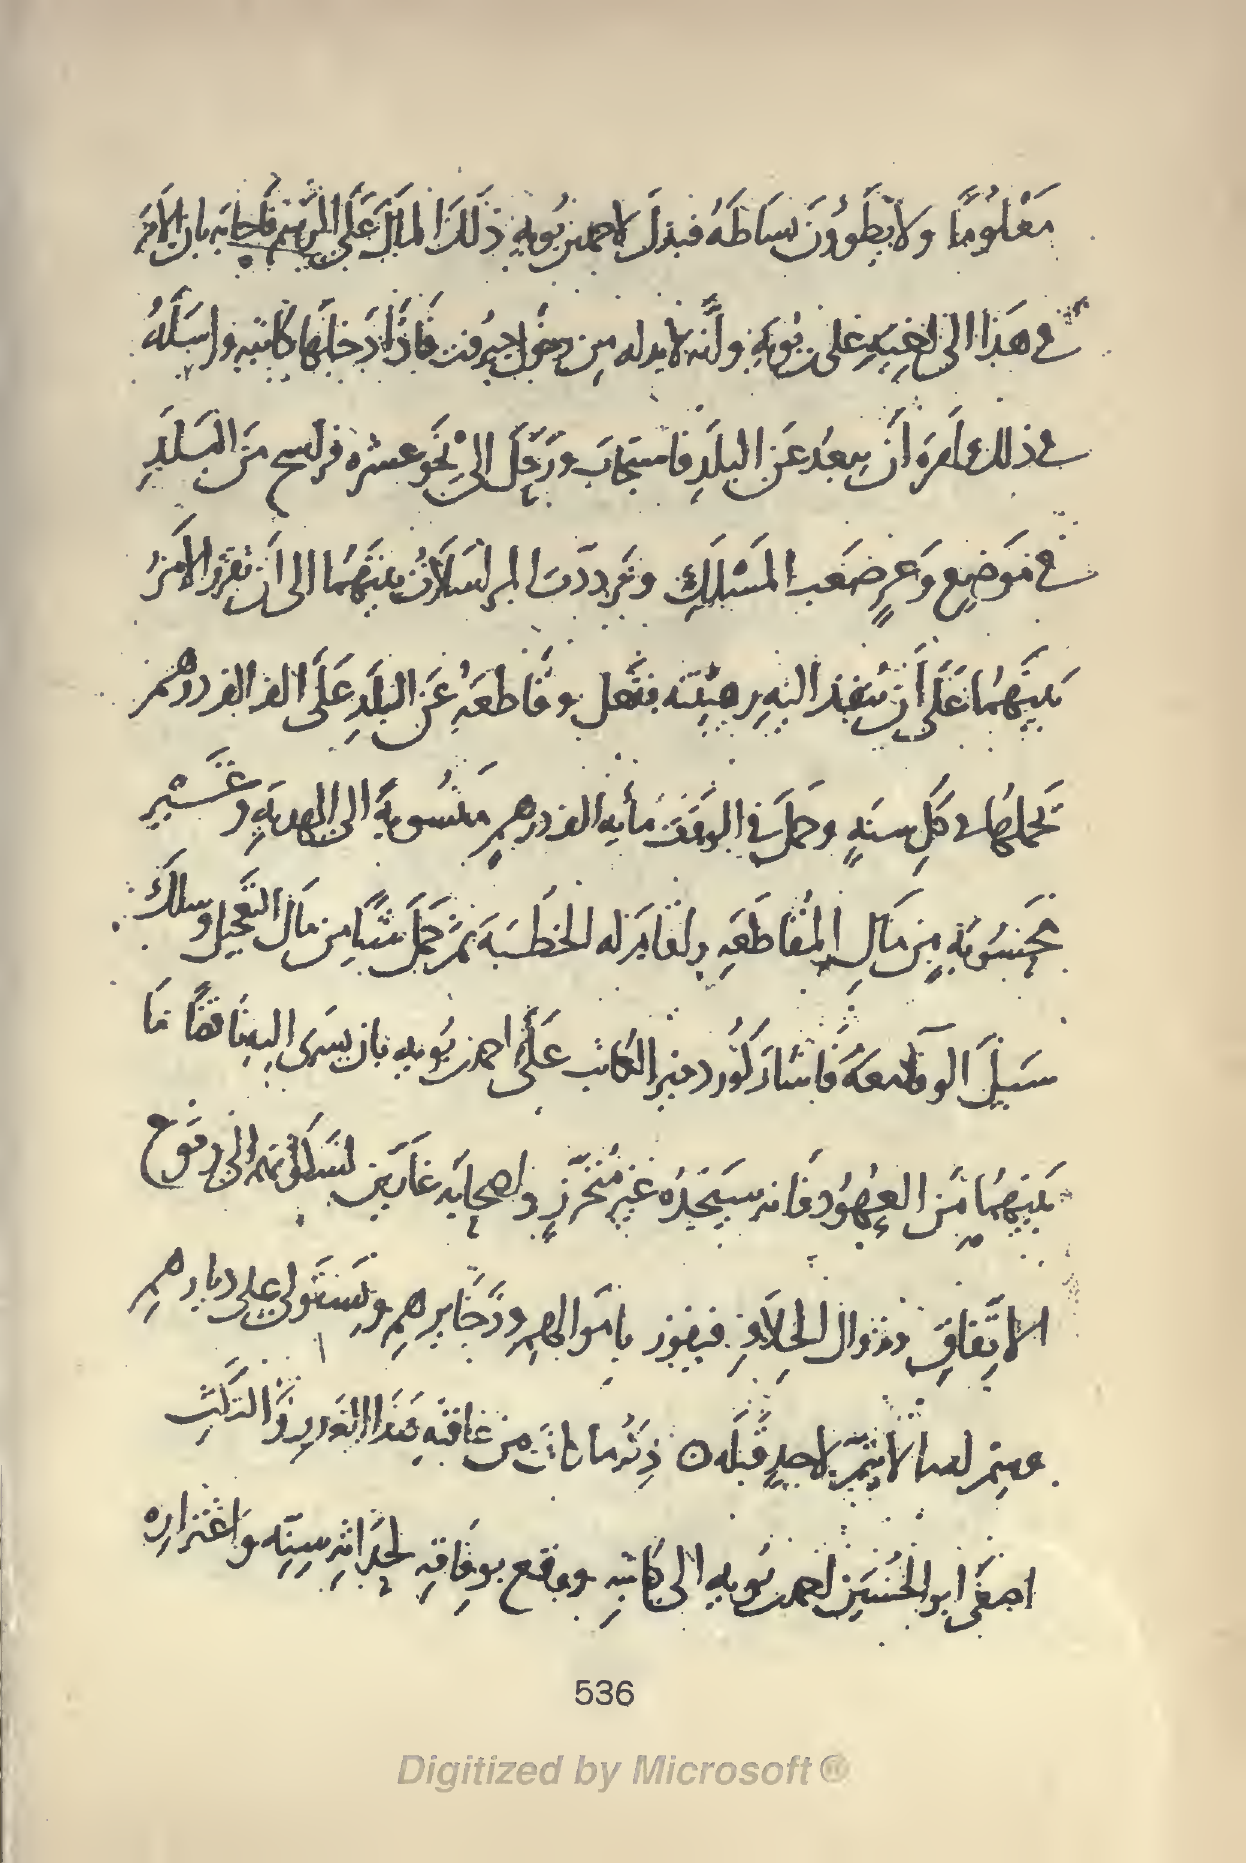 مَعْلُومًا ولا يَطَوُونَ بسَاطَهُ فبذلَ لاحمد بن بُويه ذلكَ المالَ عَلَى الرسم فاجابه بان الامرَ
في هَذا الى اخيه على بن بُويَه وانّه لابد له من دخول جيرفت فاذا دَخلَها كاتبه وراسَلَهُ
في ذلك وامَرَهُ أنْ يبعُد عَن البلَدِ فاستجابَ ورَحَلَ الى نَحْو عشرة فراسخ منَ البَلَدِ
في مَوْضِعٍ وَعرٍ صَعب المَسْلَكِ وتَردّدَت المراسَلاتُ بينَهُما الى ان تقرّرَ الامرُ
بَينَهُمَا عَلَى اَن يُنفِذ اليه رهينَه ففَعل وقَاطعَهُ عَن البلَدِ عَلَى الف الف درهم
يَحملهُا في كُلِ سنَهٍ وحملَ في الوَقت مأيه الف درهمٍ منسُوبهً الى الهديهِ وغَيْر
مَحسُوبَهٍ مِن مَال المُقاطَعَهِ واقامَ له الخطبَهَ ثم حَمَلَ شيئًا من مال التعجيل وسلكَ
سَبيلَ الوفَا معَهُ فاَشارَ كُورُدفير الكاتب عَلَى احمد بن بُويه بان يسرَى اليه ناقضًا مَا
بَينهُمَا مِنَ العُهُود فانه سيَجدُهُ غير مُتحَرّزٍ واصحابَه غارّين لسَكونهم الى وقوع
الاتِفاقِ وزوال الخِلافِ فيفوز باموالهم وذخَايرهم ويَستَولى على ديارهم
ويتم له ما لا يتمّ لاحدٍ قبلَه ٥ ذِكرُ ما كانَ من عَاقبَهِ هَذا الغدرِ والنكثِ
اصغَى ابو الحُسَين احمد بن بُويه الى كاتبه ووقع بوِفاقِهِ لحِدَاثه سِنِّه واغتراره
536
Digitized by Microsoft ®